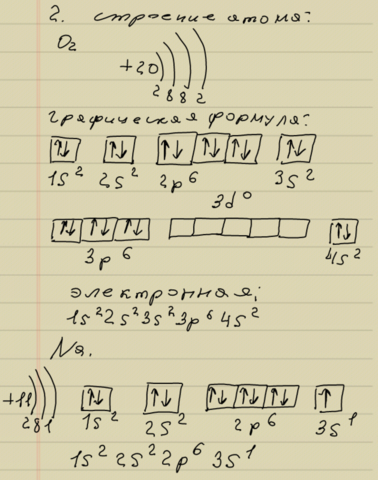 2. строение атома:
O2
+20)
2 8 8 2
графическая формула:
↑↓ ↑↓ ↑↓ ↑↓ ↑↓ ↑↓
1s² 2s² 2p⁶ 3s²
3d⁰
↑↓ ↑↓ ↑↓ ↑↓
3p⁶ 4s²
электронная:
1s² 2s² 3s² 3p⁶ 4s²
Na.
+11) ↑↓ ↑↓ ↑↓ ↑↓ ↑↓ ↑
2 8 1 1s² 2s² 2p⁶ 3s¹
1s² 2s² 2p⁶ 3s¹